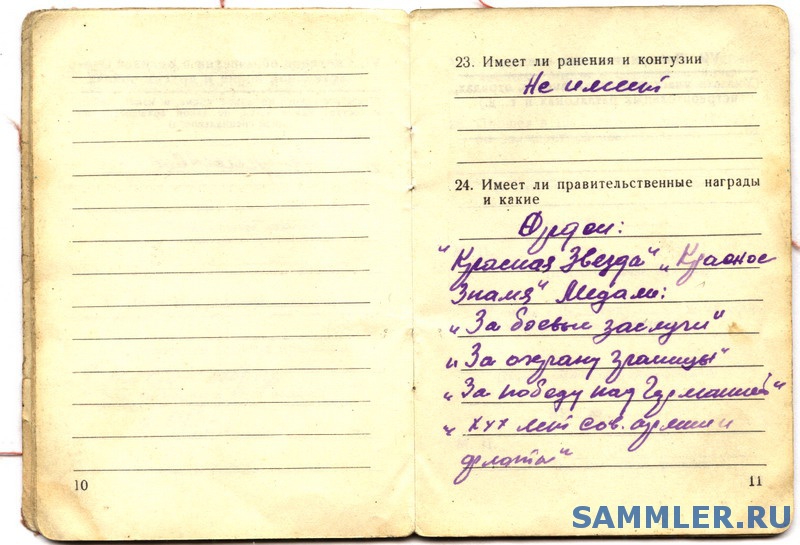 23. Имеет ли ранения и контузии
Не имеет
24. Имеет ли правительственные награды
и какие
Орден:
"Красная Звезда" „Красное
Знамя" Медали:
„За боевые заслуги"
„За охрану границы"
„За победу над Германией"
„ХХХ лет сов. армии и
флота"
10
11
SAMMLER.RU